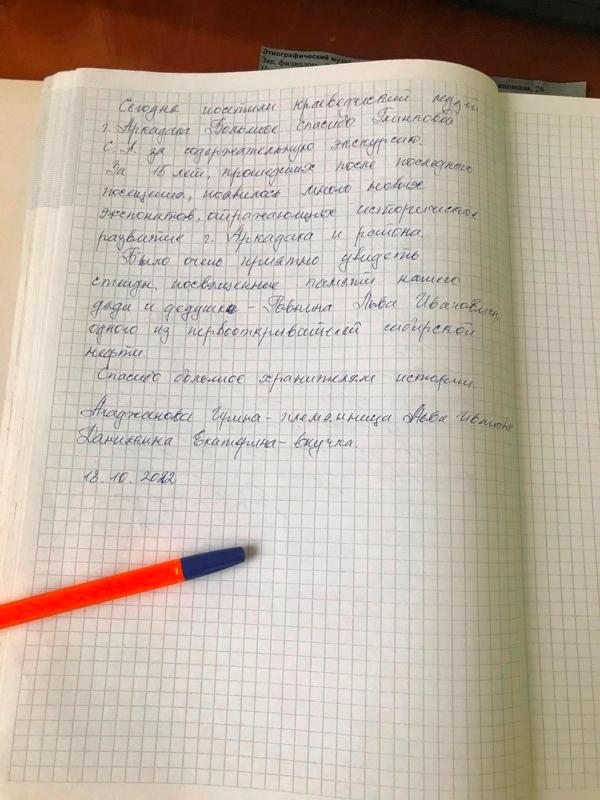 Этнографический музе
Зав. филиалом
новская, 26
Сегодня посетили краеведческий музей
г. Аркадака. Большое спасибо
С. А. за содержательную экскурсию.
За 15 лет, прошедших после последнего
посещения, появилось много новых
экспонатов, отражающих историческое
развитие г. Аркадака и района.
Было очень приятно увидеть
стенды, посвященные памяти нашего
дяди и дедушки - Ровнина Льва Ивановича,
одного из первооткрывателей сибирской
нефти.
Спасибо большое хранителям истории.
Агаджанова Ирина - племянница Льва Иванов
Данилкина Екатерина - внучка.
18.10.2022